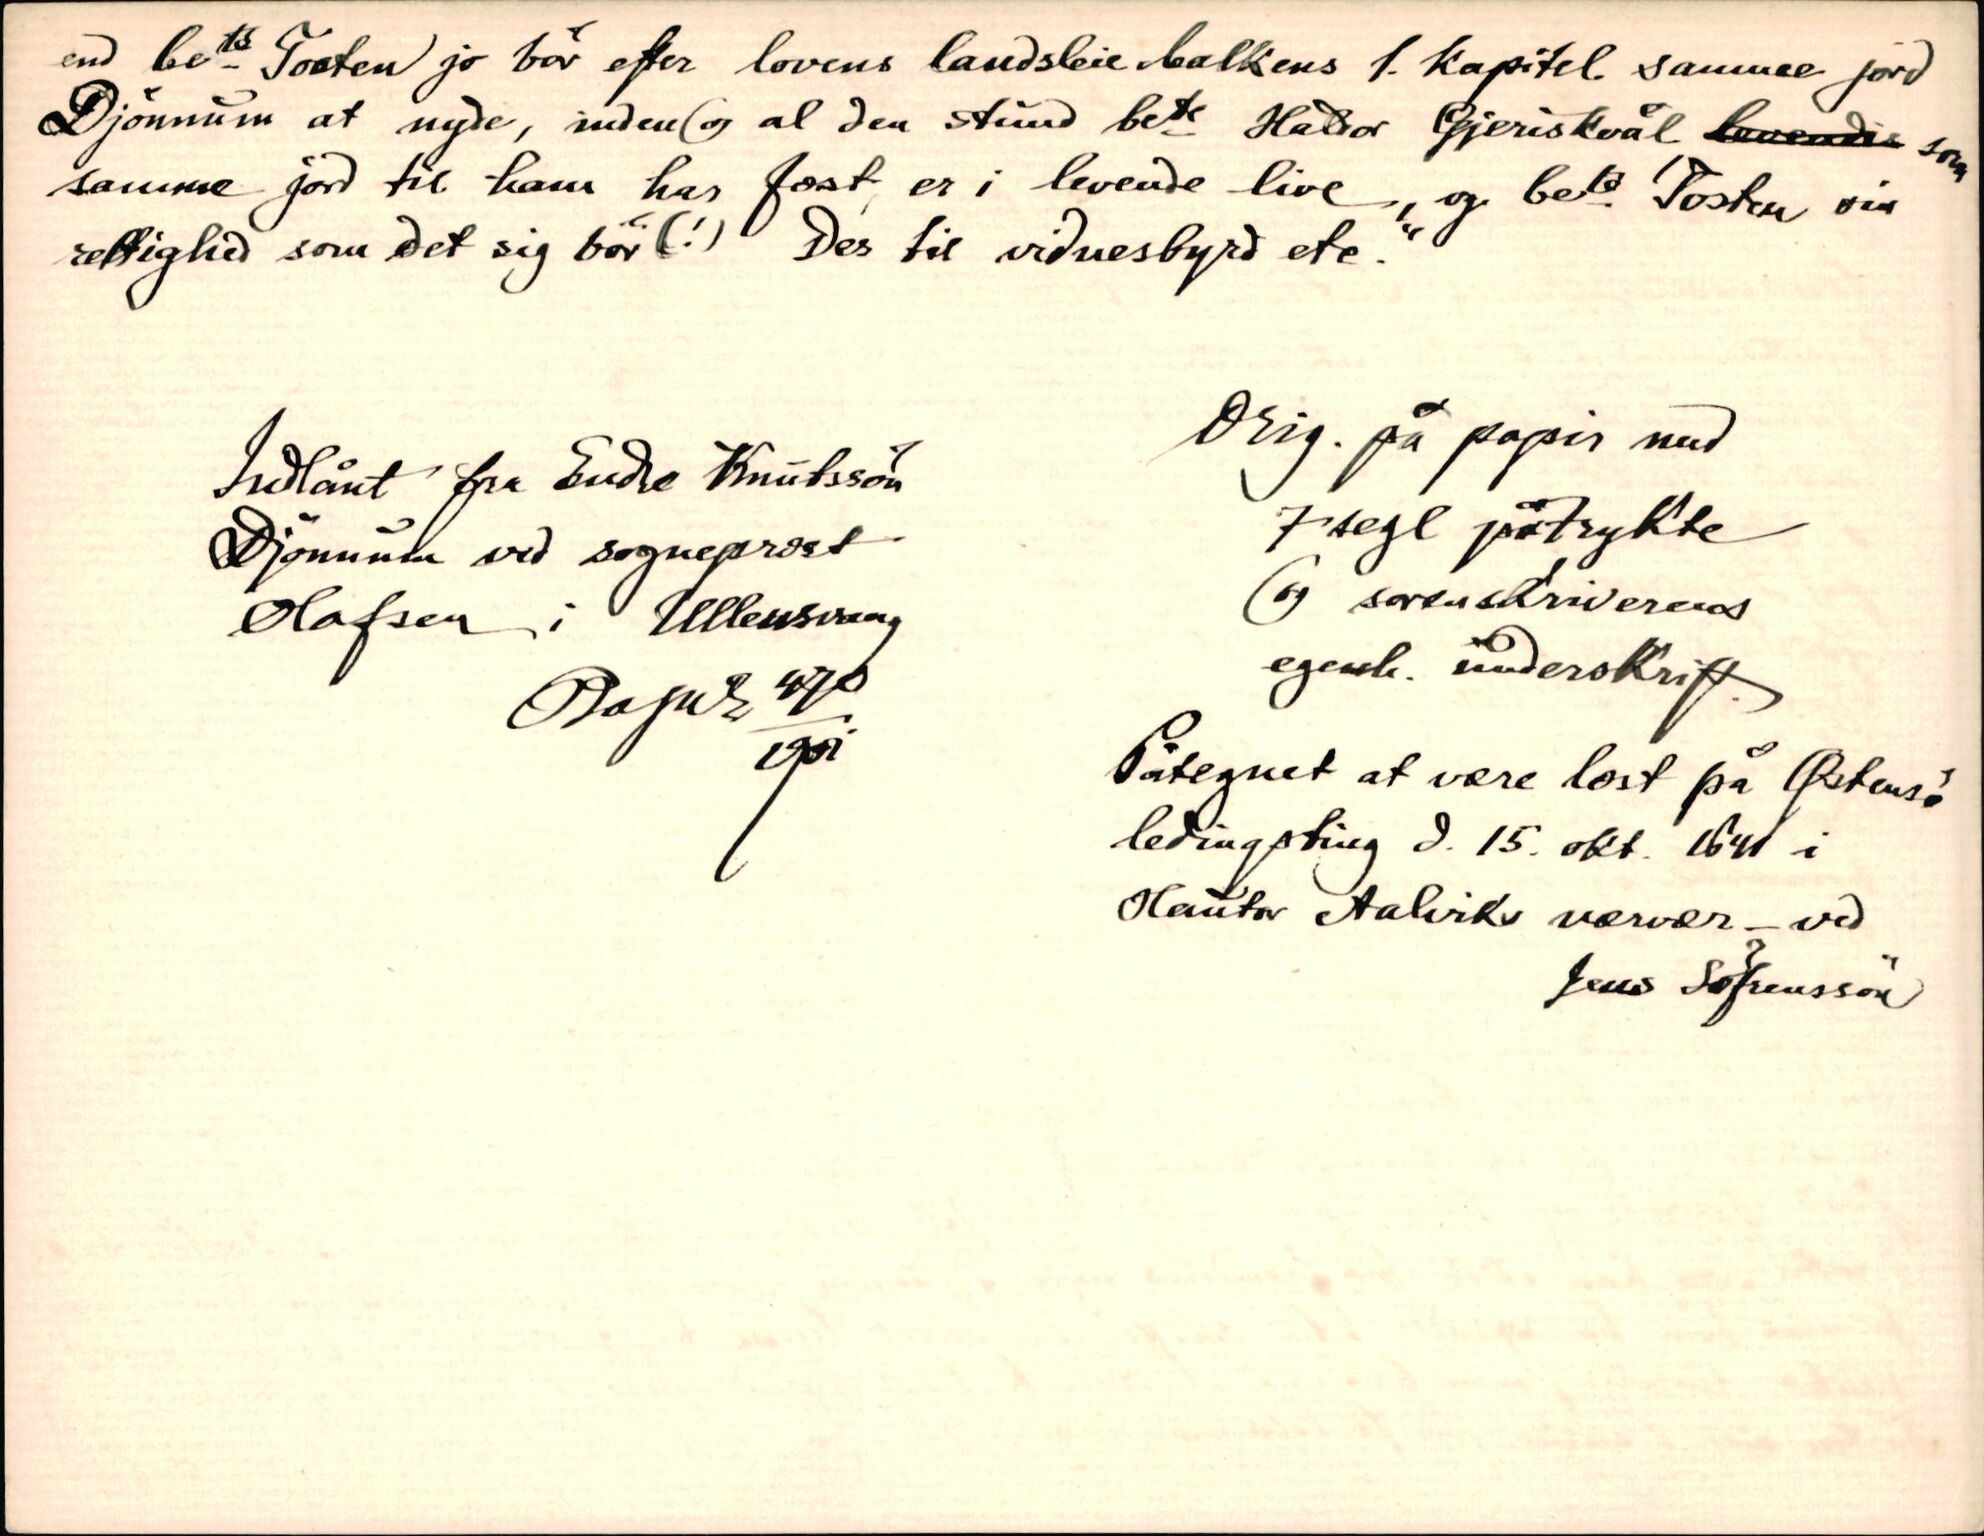 end bets Tosten jo bör efter lovens landsleie balkens 1. kapitel samme jord
Djönnum at nyde, inden (og al den stund bete Haldor Gjeriskvål som
samme jord til ham har fæst, er i levende live, og bets Tosten sin
rettighed som det sig bör (!) Des til vidnesbyrd etc."
Indlånt fra Endre Knutssön
Djönnum ved sogneprest
Olafsen i Ullensvang
1901
Orig. på papir med
7 segl påtrykte
(og sorenskriverens
egenh. underskrift.
Påtegnet at være læst på Østensö
ledingsting d. 15. okt. 1641 i
Aalviks nærvær – ved
Jens Söfrenssön